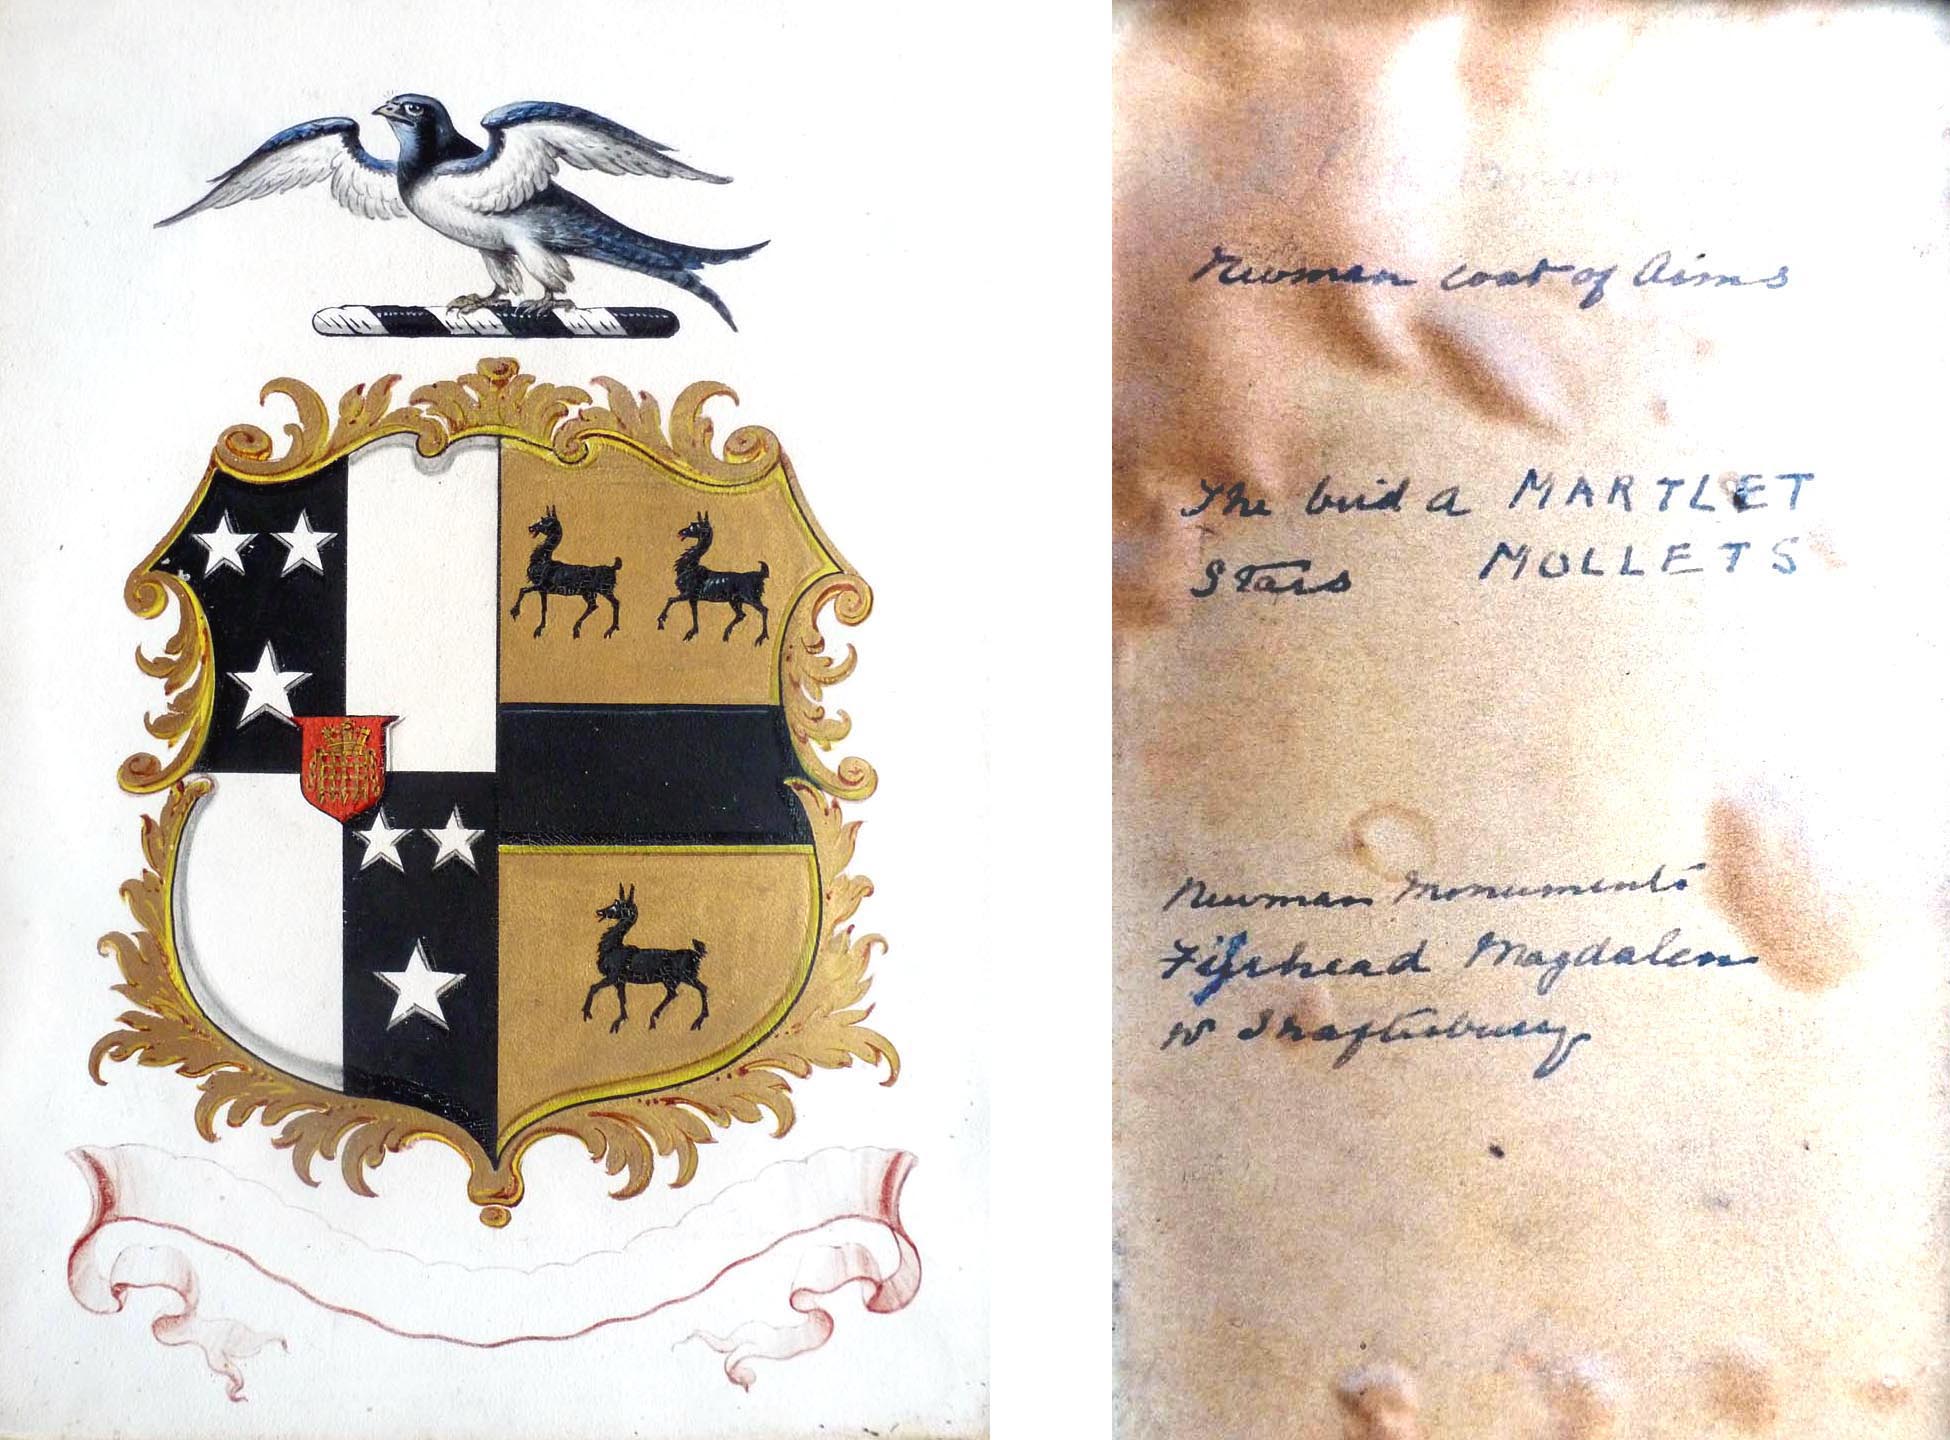 Newman Coat of Arms
The bird a MARTLET
Stars MOLLETS
Newman Monuments
Fifehead Magdalen
Nr Shaftesbury